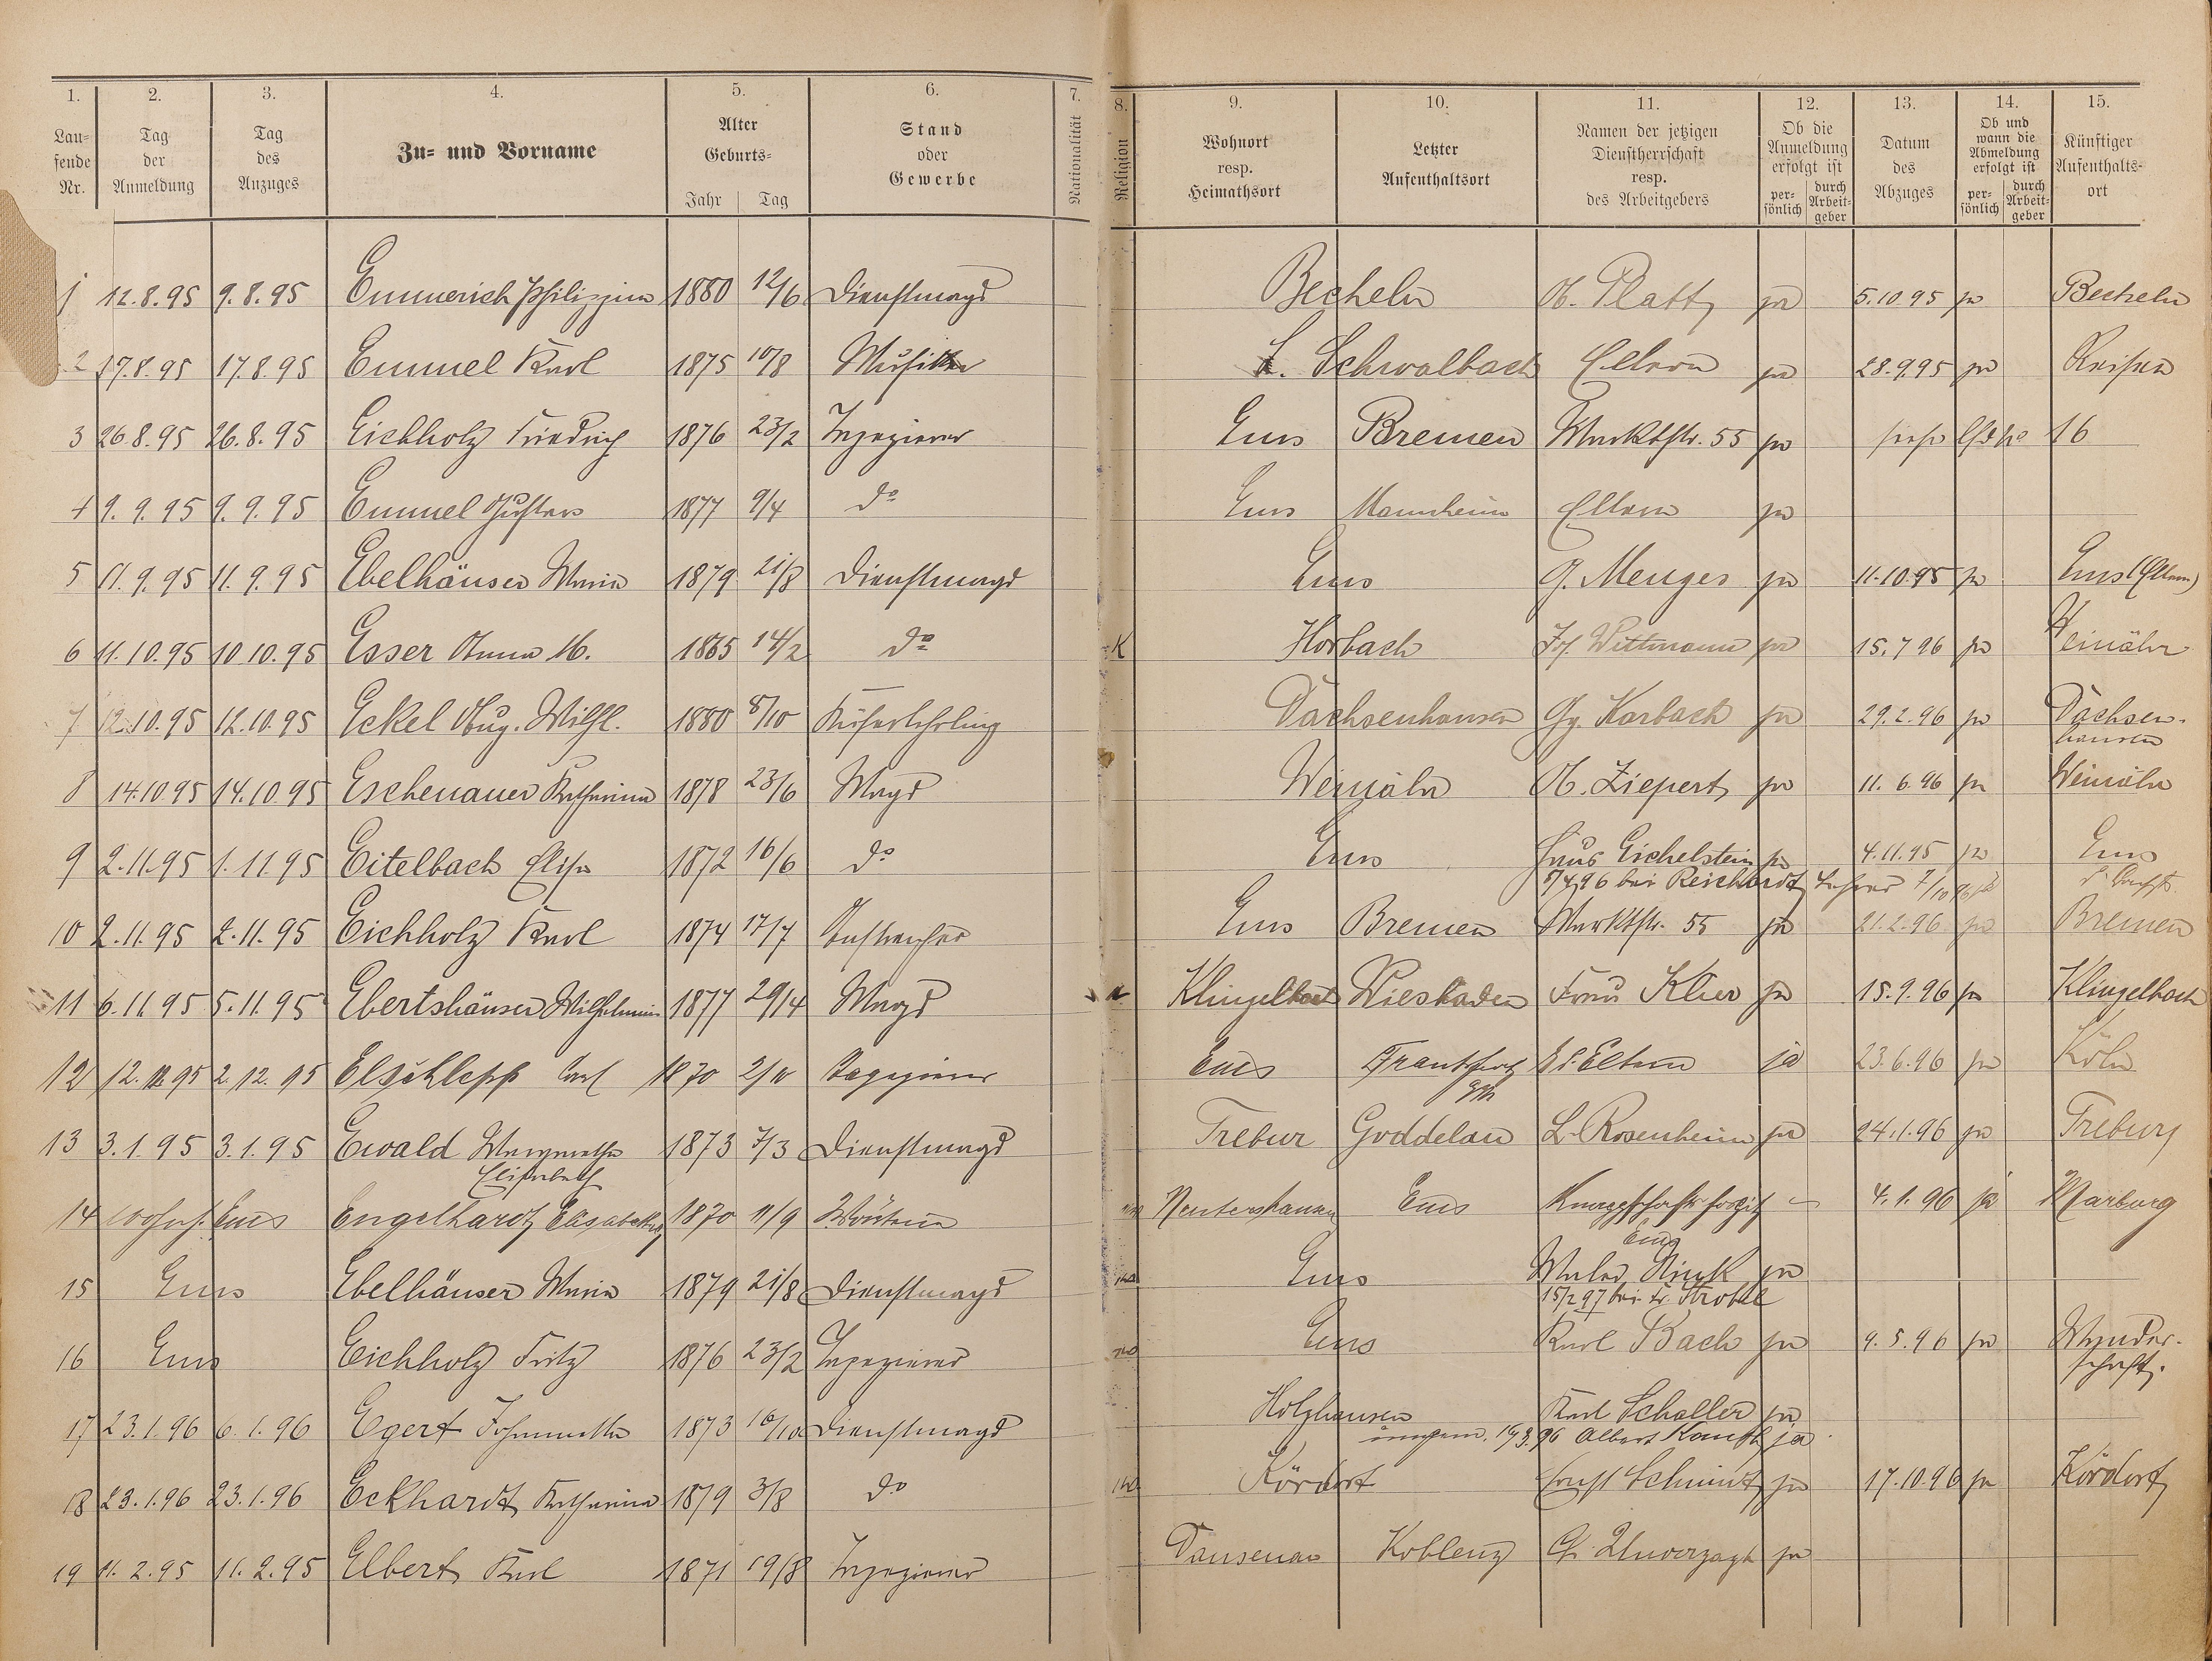 1. 2. 3. 4. 5. 6. 7. 8. 9. 10. 11. 12. 13. 14. 15.
Lau=
fende
Nr.
Tag
der
Anmeldung
Tag
des
Anzuges
Zu= und Vorname
Alter
Geburts=
Jahr Tag
Stand
oder
Gewerbe
Nationalität
Religion
Wohnort
resp.
Heimathsort
Letzter
Aufenthaltsort
Namen der jetzigen
Dienstherrschaft
resp.
des Arbeitgebers
Ob die
Anmeldung
erfolgt ist
per=
sönlich
durch
Arbeit=
geber
Datum
des
Abzuges
Ob und
wann die
Abmeldung
erfolgt ist
per=
sönlich
durch
Arbeit=
geber
Künftiger
Aufenthalts=
ort
1 12.8.95 9.8.95 Emmerich Philippina 1880 12/6 Dienstmagd Becheln A. Platt ja 5.10.95 ja Becheln
2 17.8.95 17.8.95 Emmel Karl 1875 10/8 Musiker L. Schwalbach Eltern ja 28.9.95 ja Reisen
3 26.8.95 26.8.95 Eichholz Friedrich 1876 23/2 Tapezierer Ems Bremen Marktstr. 55 ja 16
4 9.9.95 9.9.95 Emmel Gustav 1877 9/4 do Ems Mannheim Eltern ja
5 11.9.95 11.9.95 Ebelhäuser Maria 1879 21/8 Dienstmagd Ems G. Menges ja 11.10.95 ja Ems (Eltern)
6 11.10.95 10.10.95 Esser Anna M. 1865 14/2 do K Horbach Jos. Wittmann ja 15.7.96 ja Weinähr
7 12.10.95 12.10.95 Eckel Aug. Wilh. 1880 8/10 Küferlehrling Dachsenhausen Gg. Karbach ja 29.2.96 ja Dachsen-
hausen
8 14.10.95 14.10.95 Eschenauer Katharina 1878 23/6 Magd Weinähr A. Ziepert ja 11.6.96 ja Weinähr
9 2.11.95 1.11.95 Eitelbach Elise 1872 16/6 do Ems Haus Eichelstein ja 4.11.95 ja Ems
5/4 96 bei Reichardt 7/10 96
10 2.11.95 2.11.95 Eichholz Karl 1874 17/7 Anstreicher Ems Bremen Marktstr. 55 ja 21.2.96 ja Bremen
11 6.11.95 5.11.95 Ebertshäuser Wilhelmine 1877 29/4 Magd Klingelbach Wiesbaden Frau Klier ja 15.9.96 ja Klingelbach
12 12.12.95 2.12.95 Elschlepp Carl 1870 2/11 Tapezierer Ems Frankfurt
a/M Eltern ja 23.6.96 ja Köln
13 3.1.95 3.1.95 Ewald Margaretha
Elisabeth 1873 7/3 Dienstmagd Trebur Goddelau L. Rosenheim ja 24.1.96 ja Trebur
14 Ems Engelhardt Elisabeth 1870 11/9 Wärterin Nentershausen Ems
Ems 4.1.96 ja Marburg
15 Ems Ebelhäuser Maria 1879 21/8 Dienstmagd Ems Maler Rink ja
15/2 97 bei Fr. Strobel
16 Ems Eichholz Fritz 1876 23/2 Tapezierer Ems Karl Bach ja 9.5.96 ja Wander-
schaft.
17 23.1.96 6.1.96 Egert Johannetta 1873 16/10 Dienstmagd Holzhausen Karl Schaller ja
19.3.96 Albert Kauth ja
18 23.1.96 23.1.96 Eckhardt Katharina 1879 3/8 do Kördorf Ernst Schmidt ja 17.10.96 ja Kördorf
19 11.2.95 11.2.95 Elbert Karl 1871 19/8 Tapezierer Dausenau Koblenz Unverzagt ja